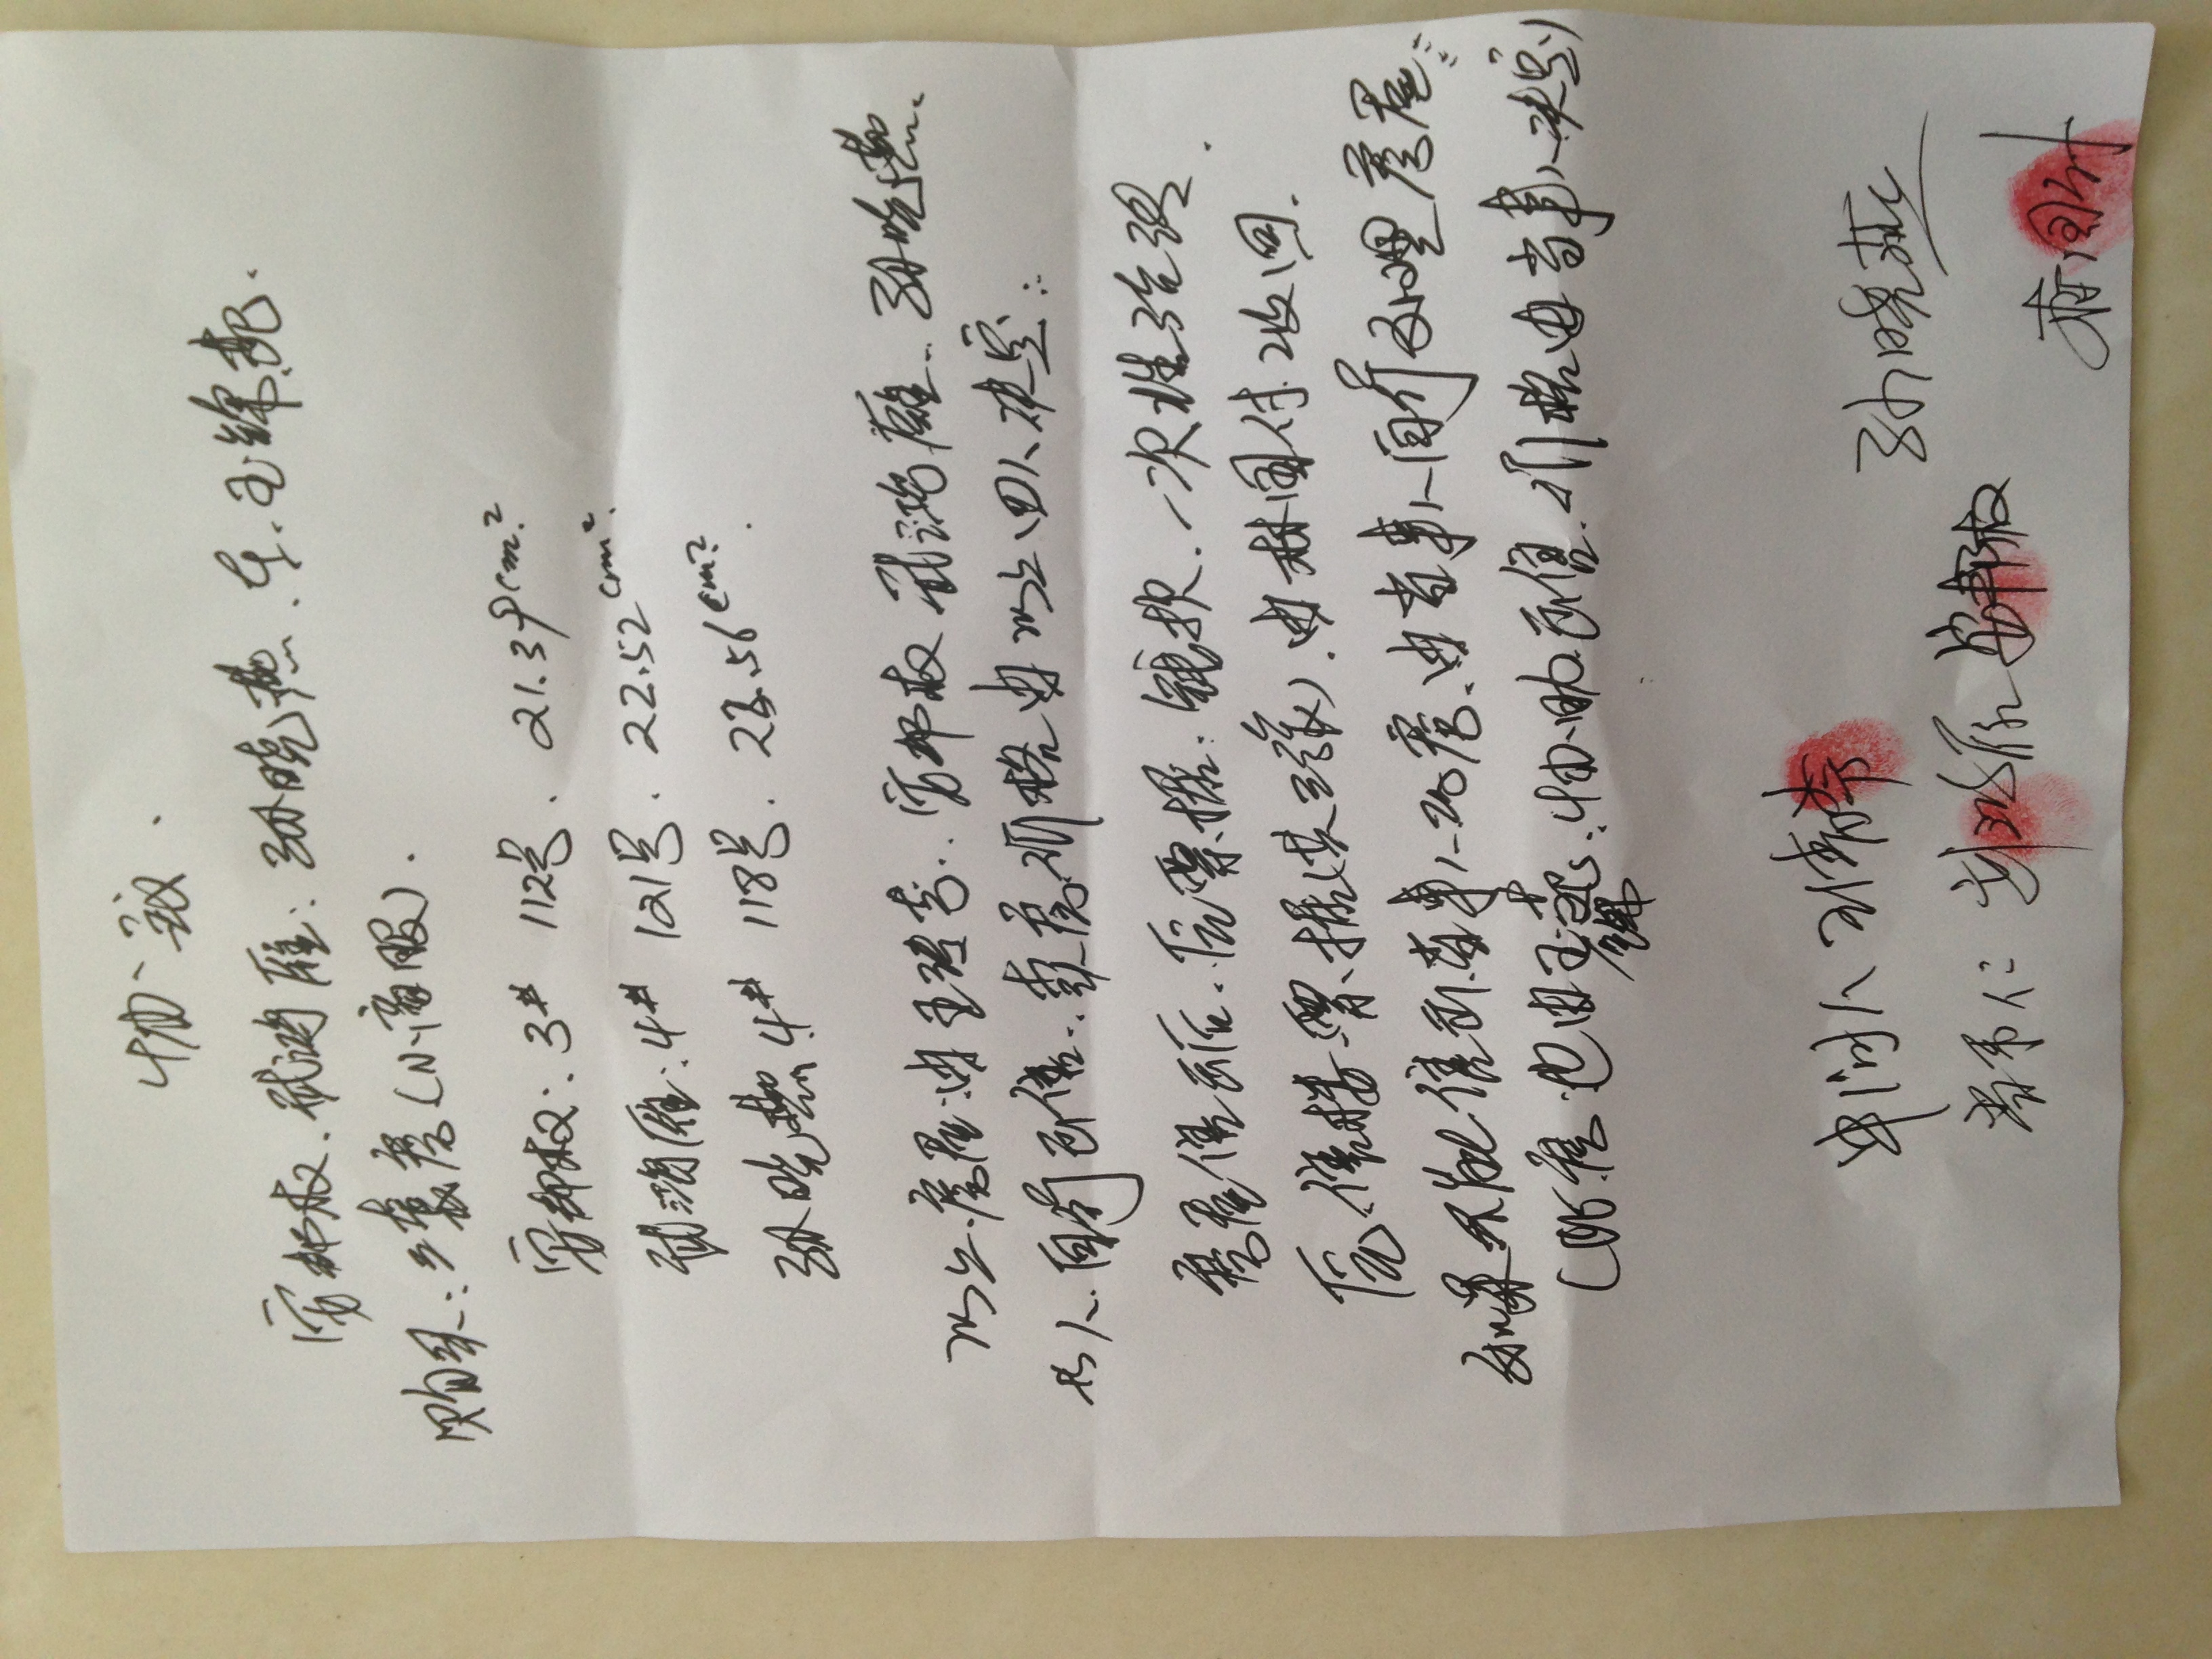 协议.
安邦权、武鸿雁、孙晓燕、在、王锦苑.
购买:三套房(小商服).
安邦权:3# 112号. 21.39cm²
武鸿雁:4# 121号. 22.52cm²
孙晓燕4# 118号. 23.56cm²
以上房屋由王 安邦权 武鸿雁 孙晓燕
共人自行出售. 卖房价格由以上四人决定
房屋售出后. 票据. 钱款. 一次性
售楼票据(共三张). 由林国付收回.
如果不能售出当事人 房. 由当事人自行处理房屋
房也由王锦苑. 协助出售. 价格由当事人决定)
中间人 王倩
孙晓燕
当事仁 安邦权
国